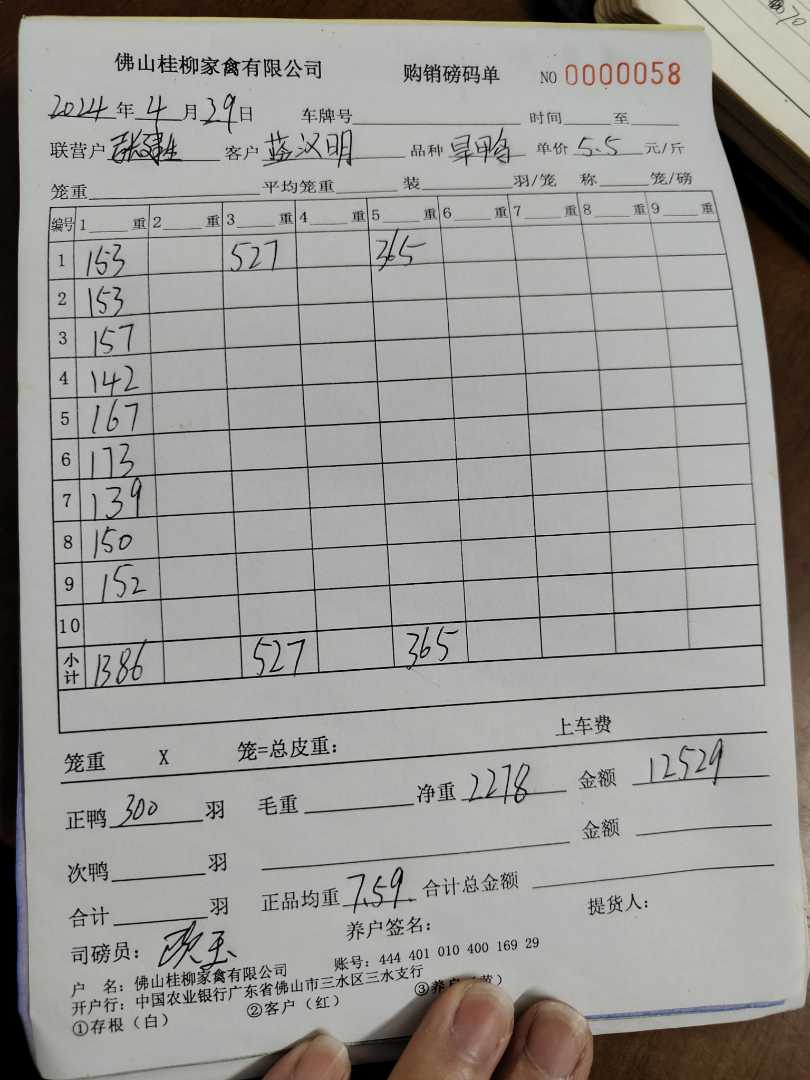 佛山桂柳家禽有限公司 购销磅码单 NO 0000058
2024年4月29日 车牌号 时间 至
联营户 客户 蒋汉明 品种 旱鸭 单价 5.5 元/斤
笼重 平均笼重 装 羽/笼 称 笼/磅
编号 1 重 2 重 3 重 4 重 5 重 6 重 7 重 8 重 9 重
1 153 527 365
2 153
3 157
4 142
5 167
6 173
7 139
8 150
9 152
10
小计 1386 527 365
上车费
笼重 X 笼=总皮重:
正鸭 300 羽 毛重 净重 2278 金额 12529
次鸭 羽 金额
合计 羽 正品均重 7.59 合计总金额
司磅员: 养户签名: 提货人:
户 名: 佛山桂柳家禽有限公司 账号: 444 401 010 400 169 29
开户行: 中国农业银行广东省佛山市三水区三水支行
①存根(白) ②客户(红) ③养户(黄)